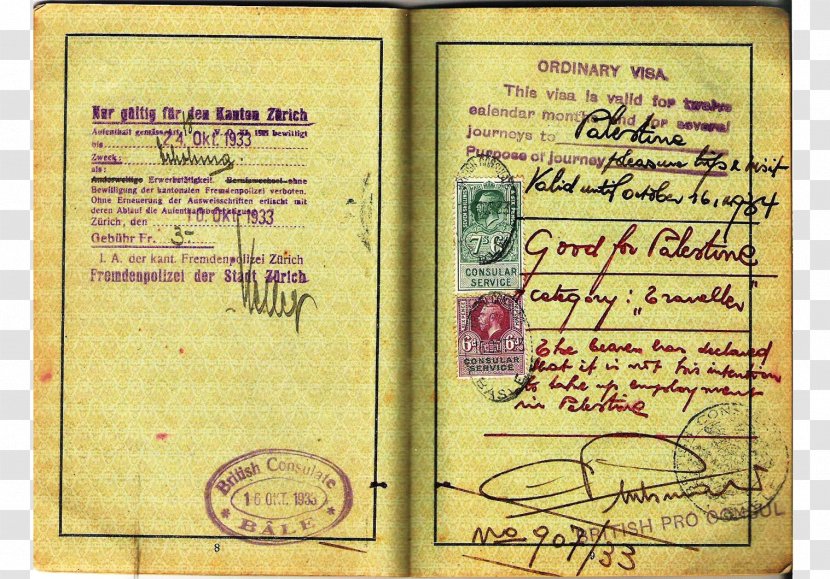 Nur gültig für den Kanton Zürich
Aufenthalt gemäss Art. 18 V. O. bewilligt
bis 4. Okt. 1933
Zweck: Erholung
als:
Anderweitige Erwerbstätigkeit, Berufswechsel ohne
Bewilligung der kantonalen Fremdenpolizei verboten.
Ohne Erneuerung der Ausweisschriften erlischt mit
deren Ablauf die Aufenthaltsbewilligung
Zürich, den 10. Okt. 1933
Gebühr Fr. 3.-
I. A. der kant. Fremdenpolizei Zürich
Fremdenpolizei der Stadt Zürich
Keller
British Consulate
16 OKT. 1933
BÂLE
8
ORDINARY VISA.
This visa is valid for twelve
calendar months and for several
journeys to Palestine
Purpose of journey pleasure trips & visit
Valid until October 16, 1934
7s 6d
CONSULAR
SERVICE
6d 6d
CONSULAR
SERVICE
BASLE
Good for Palestine
category: "Traveller"
The bearer has declared
that it is not his intention
to take up employment
in Palestine
BRITISH PRO CONSUL
No 907/33
9